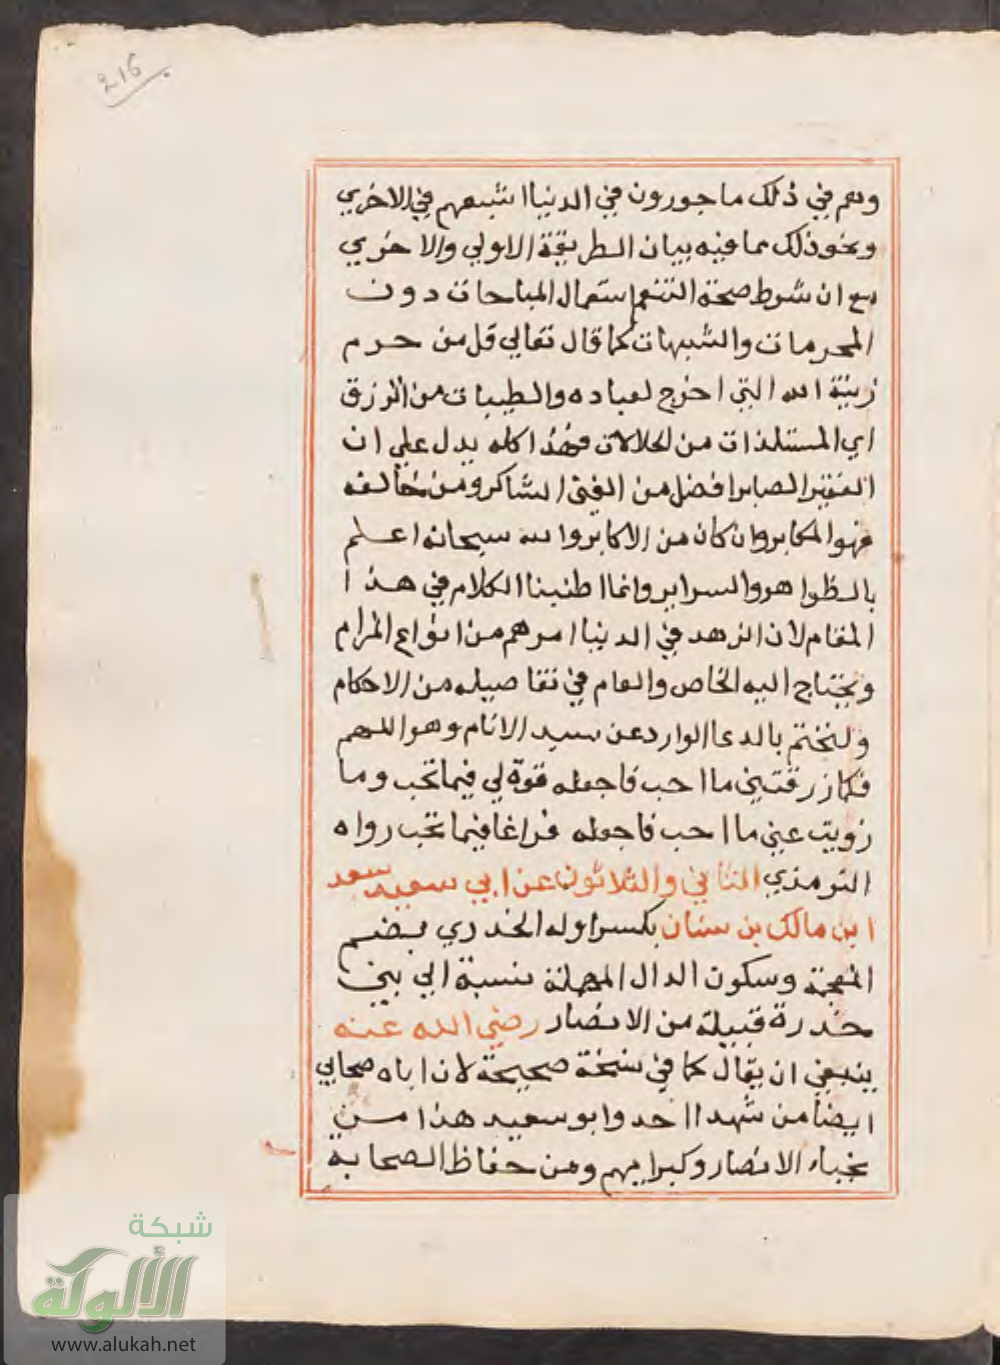 216
وهم في ذلك ماجورون في الدنيا اشبعهم في الاخري
ونحو ذلك مما فيه بيان الطريقة الاولي والاخري
مع ان شرط صحة التنعم استعمال المباحات دون
المحرمات والشبهات كما قال تعالي قل من حرم
زينة الله التي اخرج لعباده والطيبات من الرزق
اي المستلذات من الحلالات فهذا كله يدل علي ان
الفقير الصابر افضل من الغني الشاكر ومن خالفه
فهو المكابر وان كان من الاكابر والله سبحانه اعلم
بالظواهر والسراير وانما اطنبنا الكلام في هذا
المقام لان الزهد في الدنيا امرهم من انواع المرام
ويحتاج اليه الخاص والعام في تفاصيله من الاحكام
ولنختم بالدعا الوارد عن سيد الانام وهو اللهم
فكما رزقتني ما احب فاجعله قوة لي فيما تحب وما
زويت عني ما احب فاجعله فراغا فيما تحب رواه
الترمذي الثاني والثلاثون عن ابي سعيد سعد
ابن مالك بن سنان بكسر اوله الخدري بضم
المعجمة وسكون الدال المهملة نسبة الي بني
خدرة قبيلة من الانصار رضي الله عنه
ينبغي ان يقال كما في نسخة صحيحة لان اباه صحابي
ايضا من شهدا احد وابو سعيد هذا من
نجباء الانصار وكبرايهم ومن حفاظ الصحابة
شبكة
الألوكة
www.alukah.net